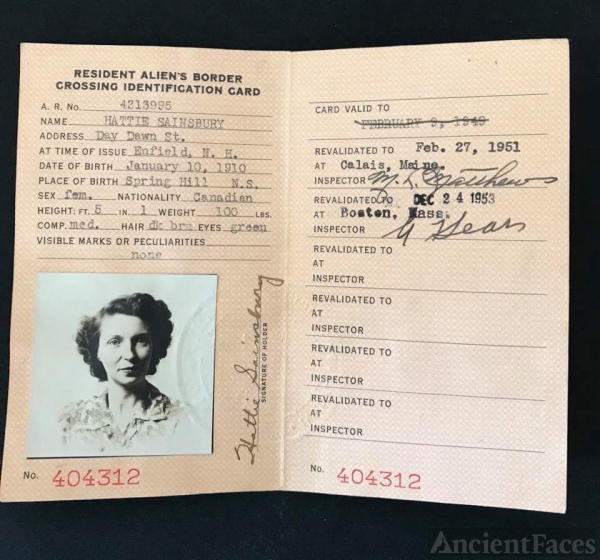 RESIDENT ALIEN'S BORDER
CROSSING IDENTIFICATION CARD
A. R. No. 4213995
NAME HATTIE SAINSBURY
ADDRESS Day Dawn St.
AT TIME OF ISSUE Enfield, N. H.
DATE OF BIRTH January 10, 1910
PLACE OF BIRTH Spring Hill N.S.
SEX fem. NATIONALITY Canadian
HEIGHT: FT. 5 IN. 1 WEIGHT 100 LBS.
COMP. med. HAIR dk brn EYES green
VISIBLE MARKS OR PECULIARITIES
none
Hattie Sainsbury
SIGNATURE OF HOLDER
No. 404312
CARD VALID TO
FEBRUARY 9, 1949
REVALIDATED TO Feb. 27, 1951
AT Calais, Maine.
INSPECTOR M. L. Matthews
REVALIDATED TO DEC 24 1953
AT Boston, Mass.
INSPECTOR G Sears
REVALIDATED TO
AT
INSPECTOR
REVALIDATED TO
AT
INSPECTOR
REVALIDATED TO
AT
INSPECTOR
REVALIDATED TO
AT
INSPECTOR
No. 404312
AncientFaces